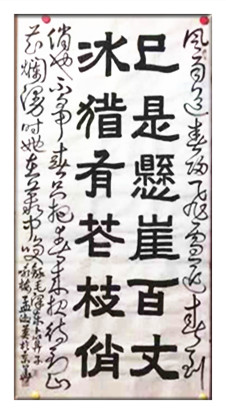 風雨送春歸飛雪迎春到
已是懸崖百丈
冰猶有芲枝俏
俏也不争春只把春来报待到山
花爛漫时她在丛中笑 錄毛澤東卜算子
咏梅